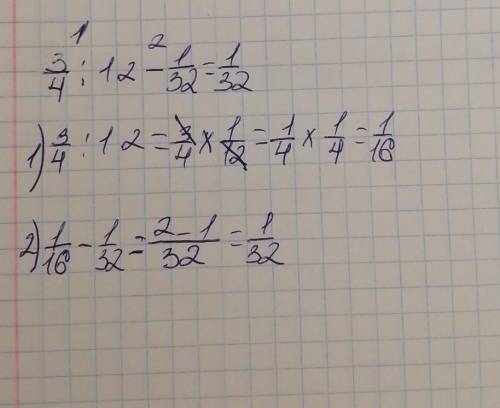 1 2
3/4 : 12 - 1/32 = 1/32
1) 3/4 : 12 = 3/4 x 1/12 = 1/4 x 1/4 = 1/16
2) 1/16 - 1/32 = 2-1/32 = 1/32